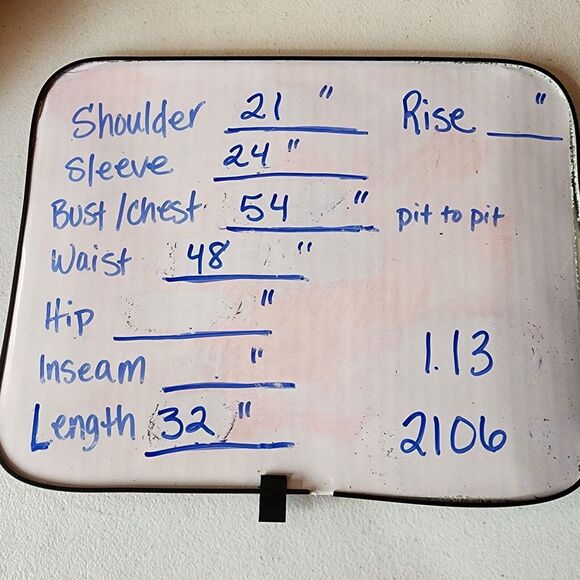 Shoulder 21 " Rise "
Sleeve 24 "
Bust/Chest 54 " pit to pit
Waist 48 "
Hip "
Inseam "
Length 32 "
1.13
2106